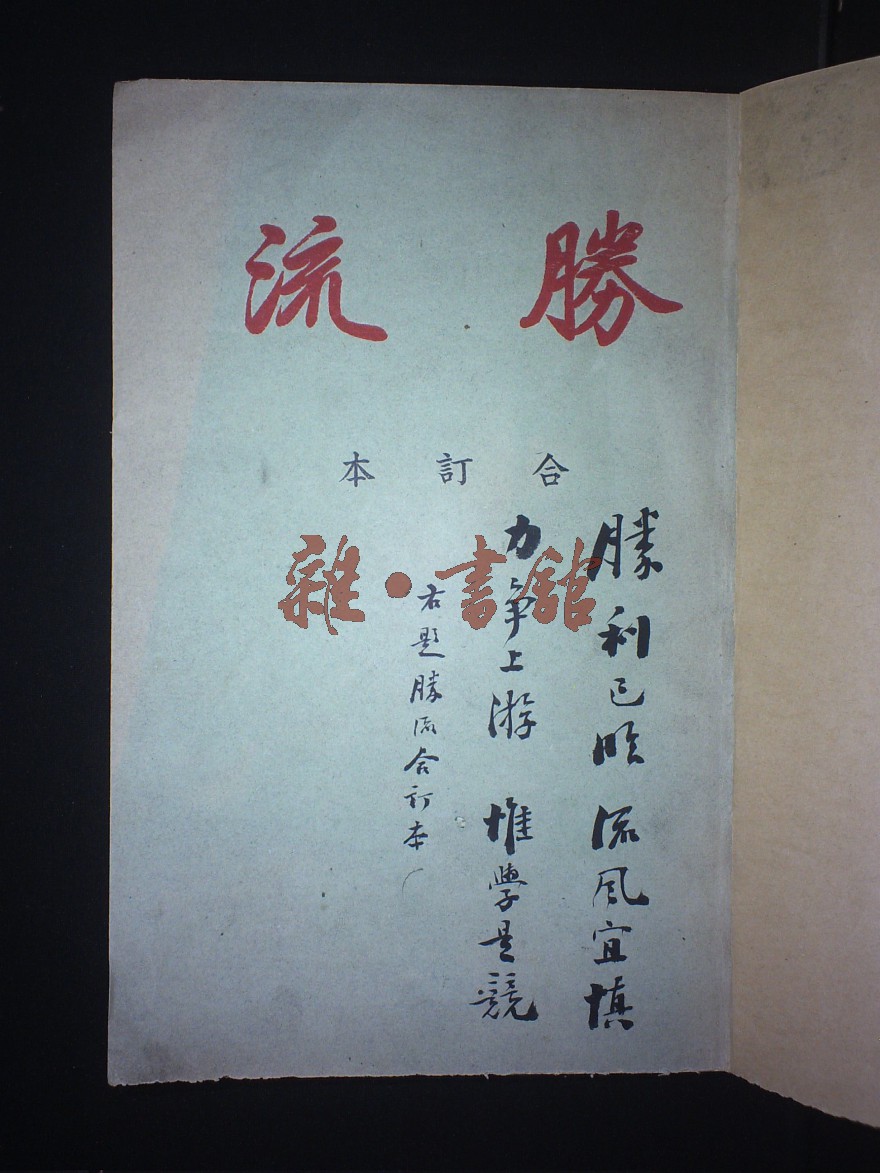 勝流
合訂本
雜·書館
勝利已臨 流風宜慎
力爭上游 惟學是競
右題勝流合訂本